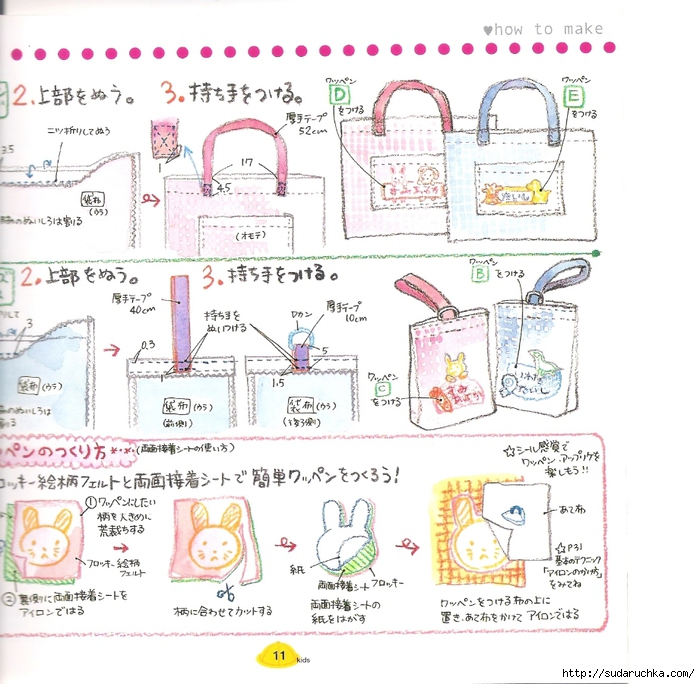 ♥how to make
2.上部をぬう。
3.持ち手をつける。
二ツ折りしてぬう
3.5
2
袋布
(ウラ)
1
厚手テープ
52cm
17
4.5
(オモテ)
ワッペン
D
をつける
ワッペン
E
をつける
2.上部をぬう。
3.持ち手をつける。
3
袋布
(ウラ)
厚手テープ
40cm
0.3
持ち手を
ぬいつける
1
袋布(ウラ)
(前側)
Dカン
厚手テープ
10cm
5
1.5
袋布(ウラ)
(後ろ側)
ワッペン
B
をつける
ワッペン
C
をつける
ペンのつくり方
(両面接着シートの使い方)
ロッキー絵柄フェルトと両面接着シートで簡単ワッペンをつくろう!
①ワッペンにしたい
柄を大きめに
荒裁ちする
フロッキー絵柄
フェルト
②裏側に両面接着シートを
アイロンではる
柄に合わせてカットする
紙
両面接着シート
フロッキー
両面接着シートの
紙をはがす
☆シール感覚で
ワッペン・アップリケを
楽しもう!!
あて布
☆P31
基本のテクニック
「アイロンのかけ方」
をみてね
ワッペンをつける布の上に
置き、あて布をかけてアイロンではる
11
kids
http://sudaruchka.com/